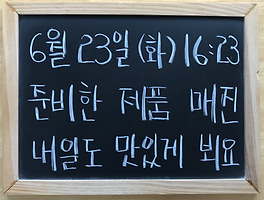 6월 23일 (화) 16:23
준비한 제품 매진
내일도 맛있게 뵈요